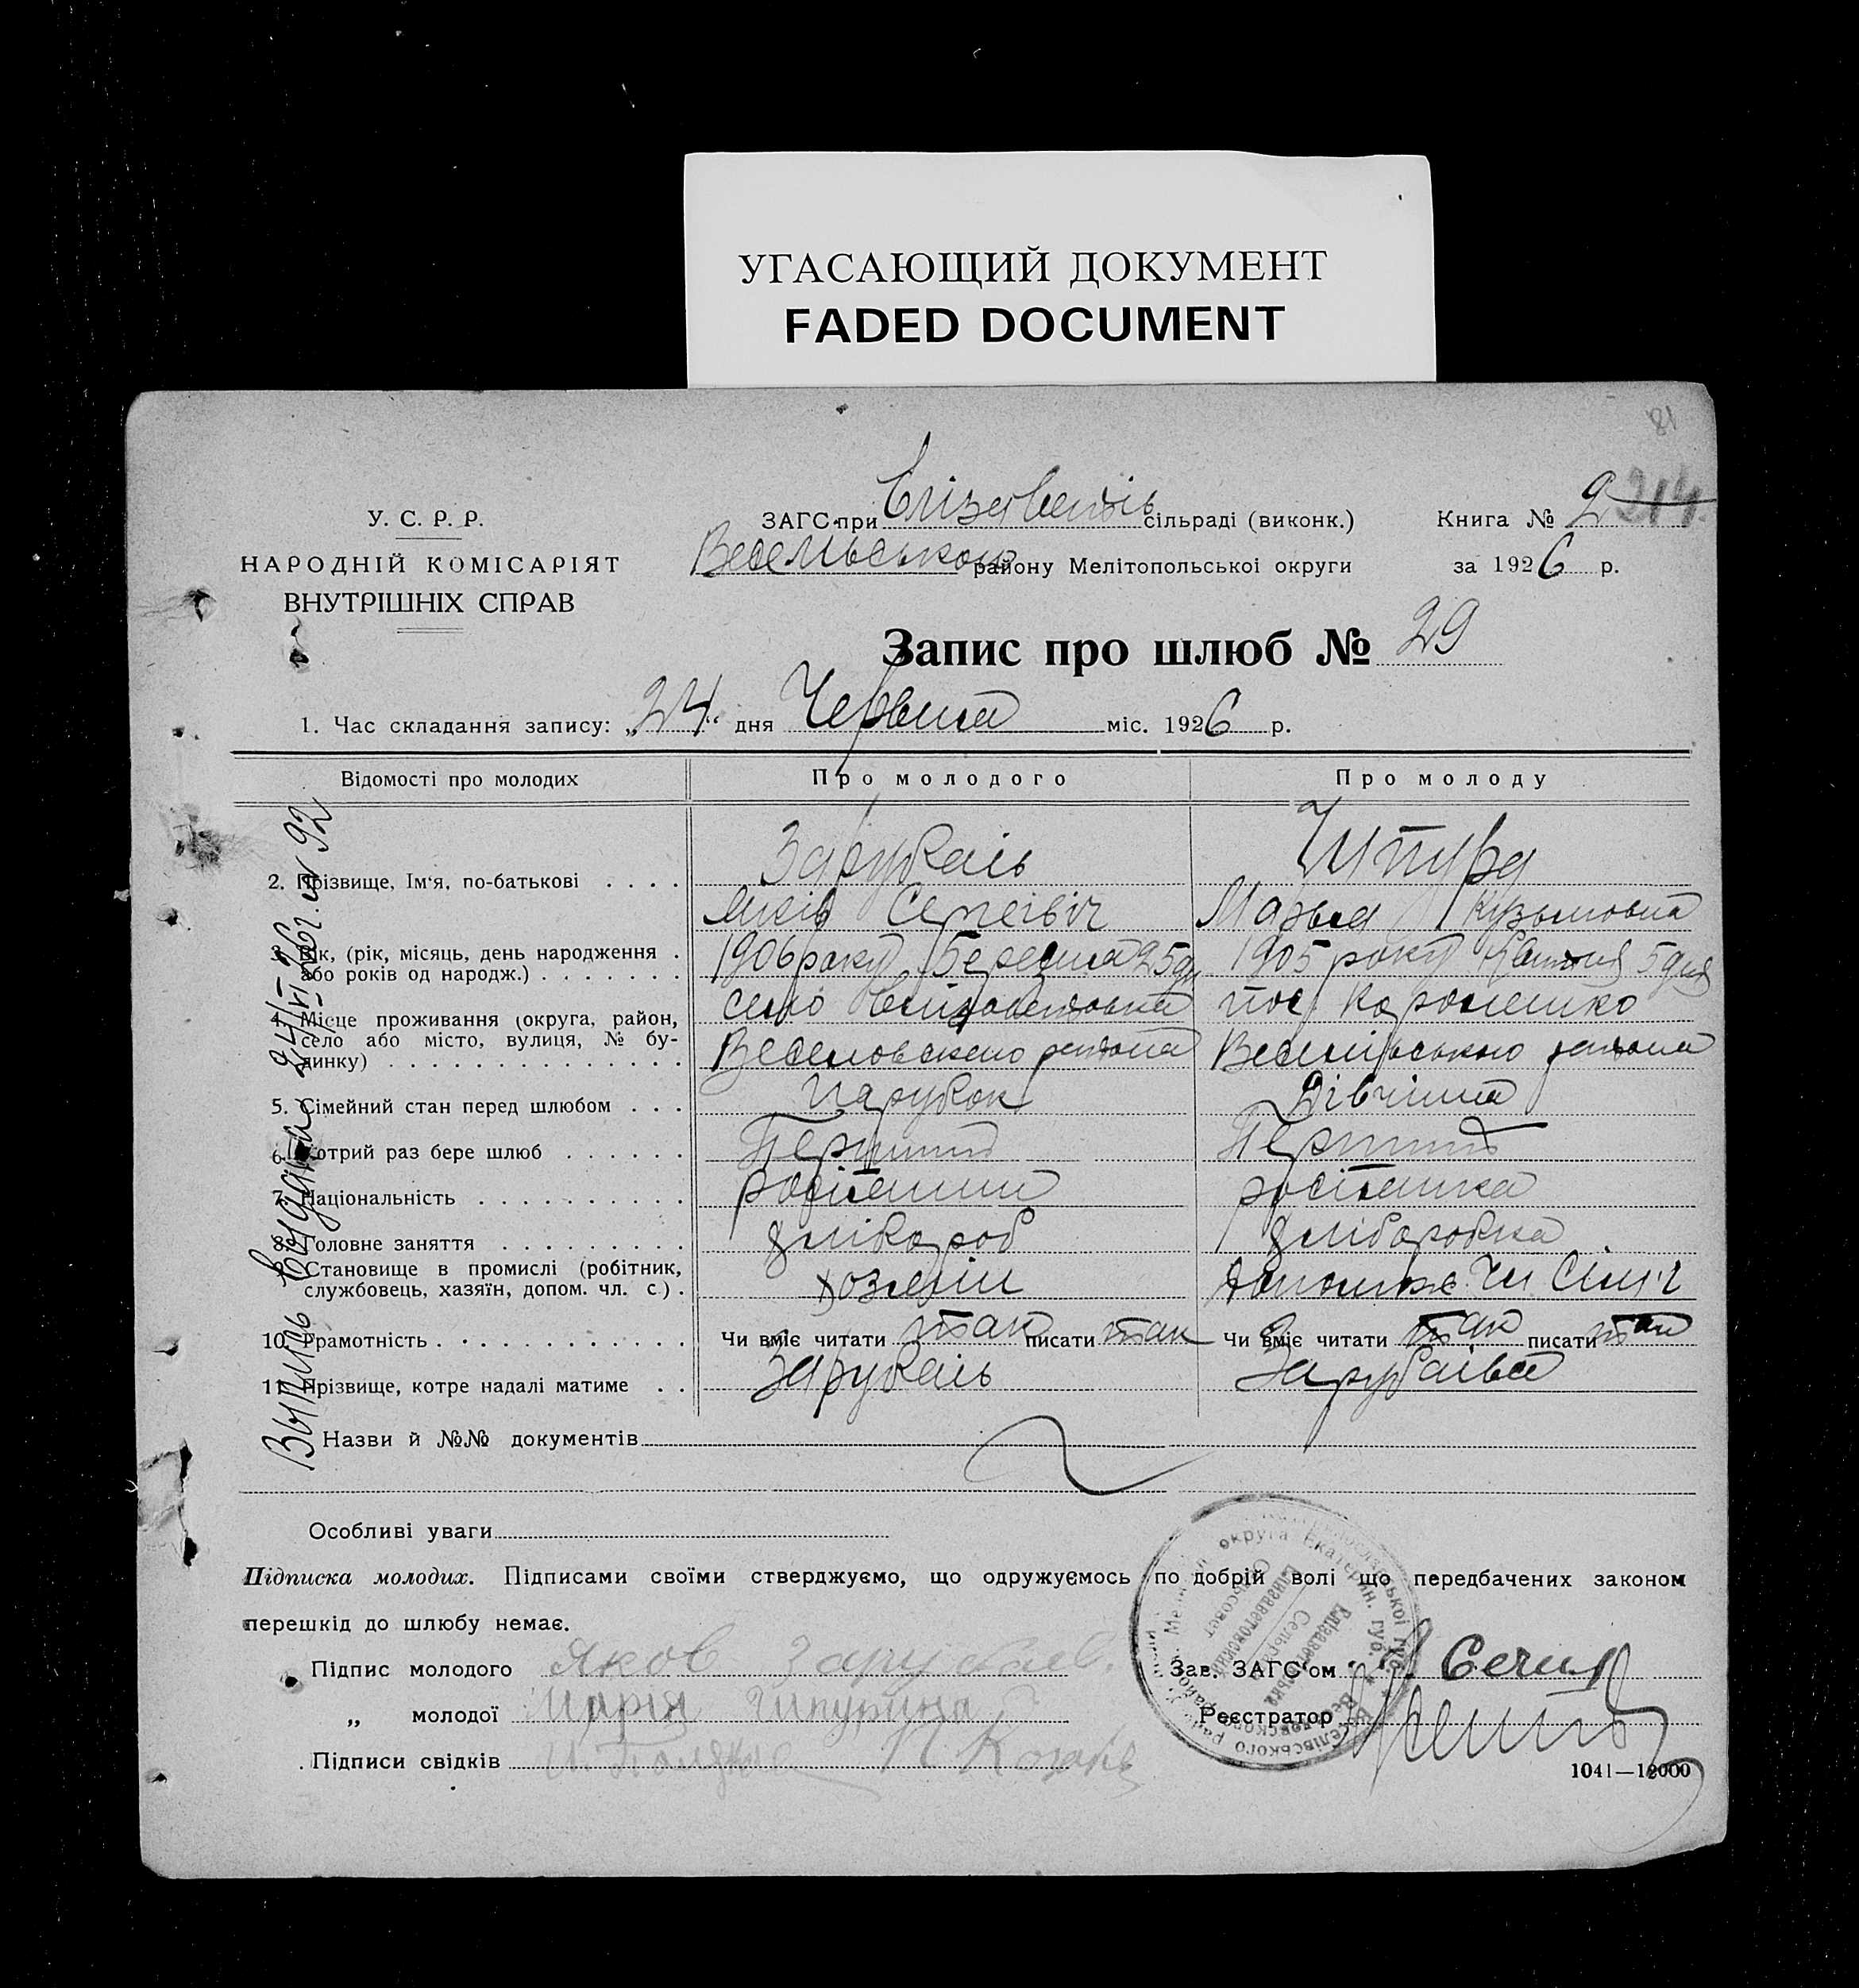 УГАСАЮЩИЙ ДОКУМЕНТ
FADED DOCUMENT
81
У. С. Р. Р.
НАРОДНІЙ КОМІСАРІЯТ
ВНУТРІШНІХ СПРАВ
ЗАГС при Єлізаветів сільраді (виконк.)
району Мелітопольської округи
Книга № 2 214
за 1926 р.
Запис про шлюб № 29
1. Час складання запису: „24“ дня Червня міс. 1926 р.
Відомості про молодих Про молодого Про молоду
2. Прізвище, Ім'я, по-батькові . . . . Зарубаїв Чипура
Яків Сергієвіч Марья Кузьмовна
3. Вік, (рік, місяць, день народження . 1906 року Березня 25 дн 1905 року 5 дня
або років од народж.) . . . . . . .
4. Місце проживання (округа, район, село пос.
село або місто, вулиця, № бу- Веселовского района Веселівського района
динку) . . . . . . . . . . . . . .
5. Сімейний стан перед шлюбом . . . Парубок Дівчина
6. Котрий раз бере шлюб . . . . . . Перший Перший
7. Національність . . . . . . . . . . росіянин росіянка
8. Головне заняття . . . . . . . . . хлібороб хліборобка
9. Становище в промислі (робітник,
службовець, хазяїн, допом. чл. с.) . хозяїн
10. Грамотність . . . . . . . . . . . . Чи вміє читати так писати так Чи вміє читати так писати так
11. Прізвище, котре надалі матиме . . Зарубаїв Зарубаїва
Назви й №№ документів
Особливі уваги
Підписка молодих. Підписами своїми стверджуємо, що одружуємось по добрій волі що передбачених законом
перешкід до шлюбу немає.
Підпис молодого Яков Зарубаев.
„ молодої Марія Чипурина
Підписи свідків
Зав. ЗАГС'ом
Реєстратор
1041—12000
Выпись выдана 24/VI-26г. за № 92